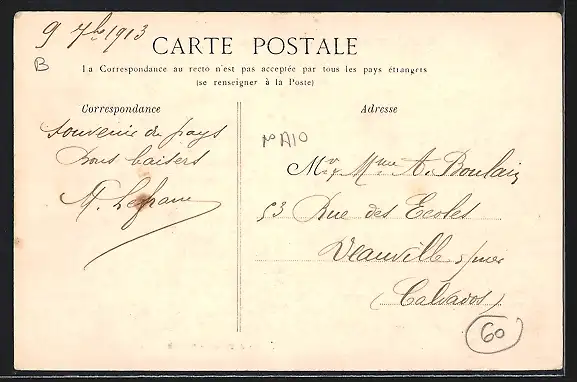 9 7b 1913
B
CARTE POSTALE
La Correspondance au recto n'est pas acceptée par tous les pays étrangers
(se renseigner à la Poste)
Correspondance
Adresse
Souvenir du pays
Doux baisers
No A10
Mr & Mme A. Boulain
53 Rue des Ecoles
Deauville s/mer
(Calvados)
60